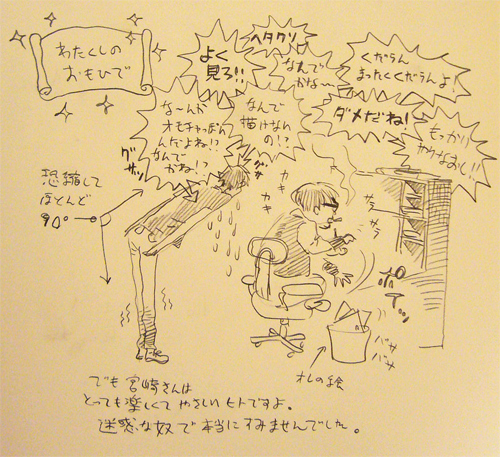 わたくしの
おもひで
ヘタクソ
よく
見ろ!!
なんで
かな〜
くだらん
まったくくだらんよ!
な〜んか
オモチャっぽい
んだよね!?
なんで
かね!?
なんで
描けない
の!?
ダメだね!
もっかい
かきなおし!!
グサッ
グサ
恐縮して
ほとんど
90°
カキ
カキ
サラ
サラ
ポーイッ
バサ
バサ
オレの絵
でも宮崎さんは
とっても楽しくてやさしいヒトですよ。
迷惑な奴で本当にすみませんでした。